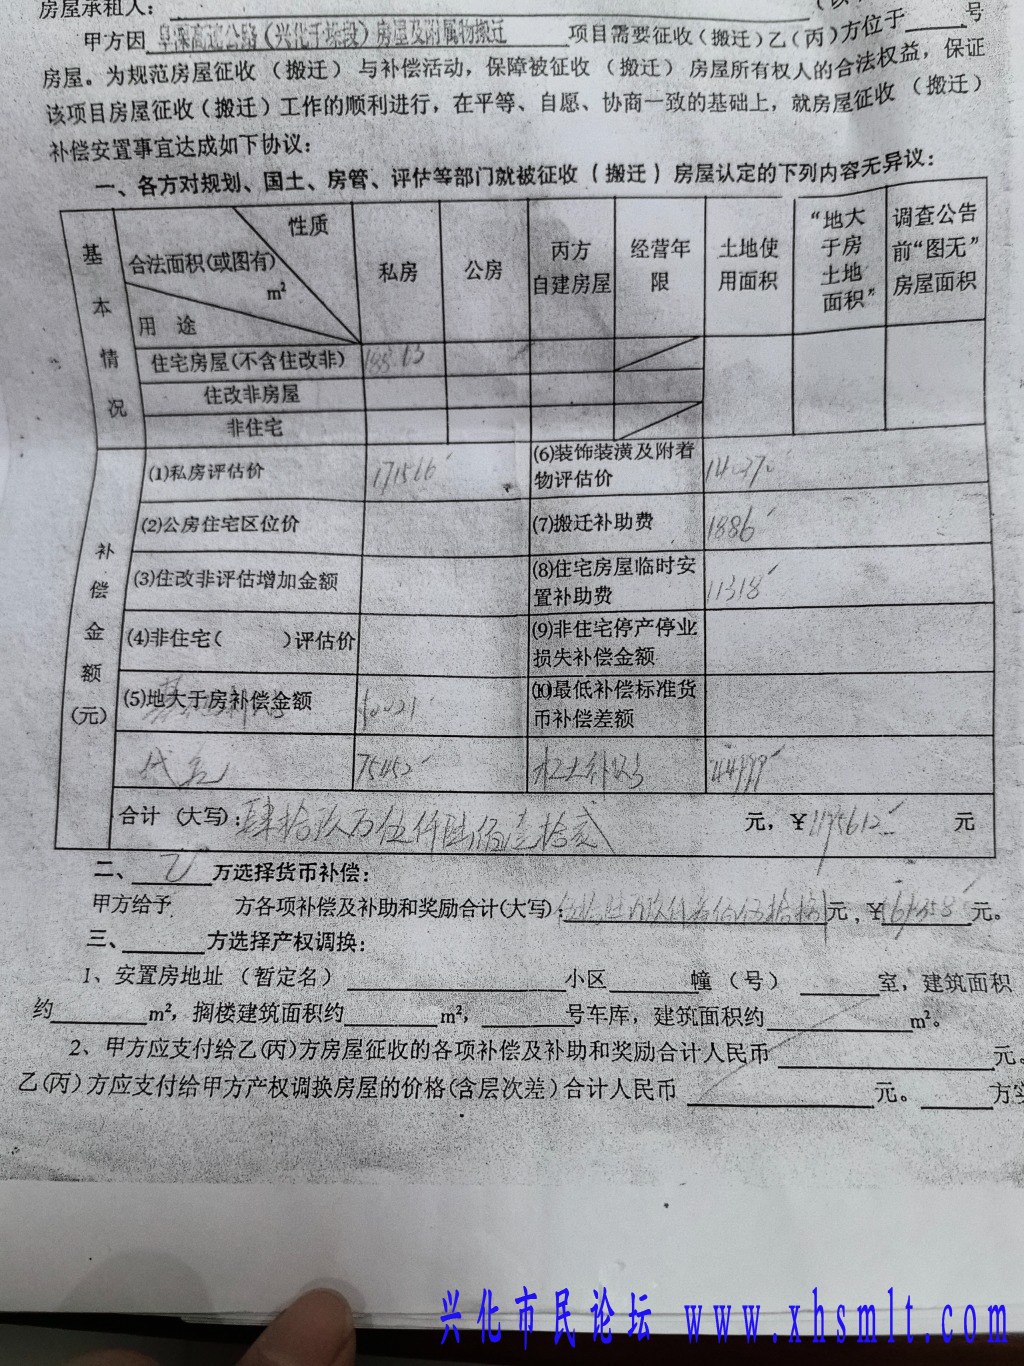 房屋承租人：
甲方因 阜溧高速公路（兴化千垛段）房屋及附属物搬迁 项目需要征收（搬迁）乙（丙）方位于 号
房屋。为规范房屋征收（搬迁）与补偿活动，保障被征收（搬迁）房屋所有权人的合法权益，保证
该项目房屋征收（搬迁）工作的顺利进行，在平等、自愿、协商一致的基础上，就房屋征收（搬迁）
补偿安置事宜达成如下协议：
一、各方对规划、国土、房管、评估等部门就被征收（搬迁）房屋认定的下列内容无异议：
基本情况
性质
合法面积(或图有) m²
用途
私房
公房
丙方自建房屋
经营年限
土地使用面积
“地大于房土地面积”
调查公告前“图无”房屋面积
住宅房屋(不含住改非)
住改非房屋
非住宅
补偿金额(元)
(1)私房评估价 171566
(6)装饰装潢及附着物评估价 140370
(2)公房住宅区位价
(7)搬迁补助费 1886
(3)住改非评估增加金额
(8)住宅房屋临时安置补助费 11318
(4)非住宅( )评估价
(9)非住宅停产停业损失补偿金额
(5)地大于房补偿金额
(10)最低补偿标准货币补偿差额
75452
44999
合计（大写）：肆拾玖万伍仟陆佰壹拾贰 元，￥495612 元
二、 乙 方选择货币补偿：
甲方给予 方各项补偿及补助和奖励合计(大写)： 元，￥ 元。
三、 方选择产权调换：
1、安置房地址（暂定名） 小区 幢（号） 室，建筑面积
约 m²，搁楼建筑面积约 m²， 号车库，建筑面积约 m²。
2、甲方应支付给乙(丙)方房屋征收的各项补偿及补助和奖励合计人民币 元。
乙(丙)方应支付给甲方产权调换房屋的价格(含层次差)合计人民币 元。 方实
兴化市民论坛 www.xhsmlt.com